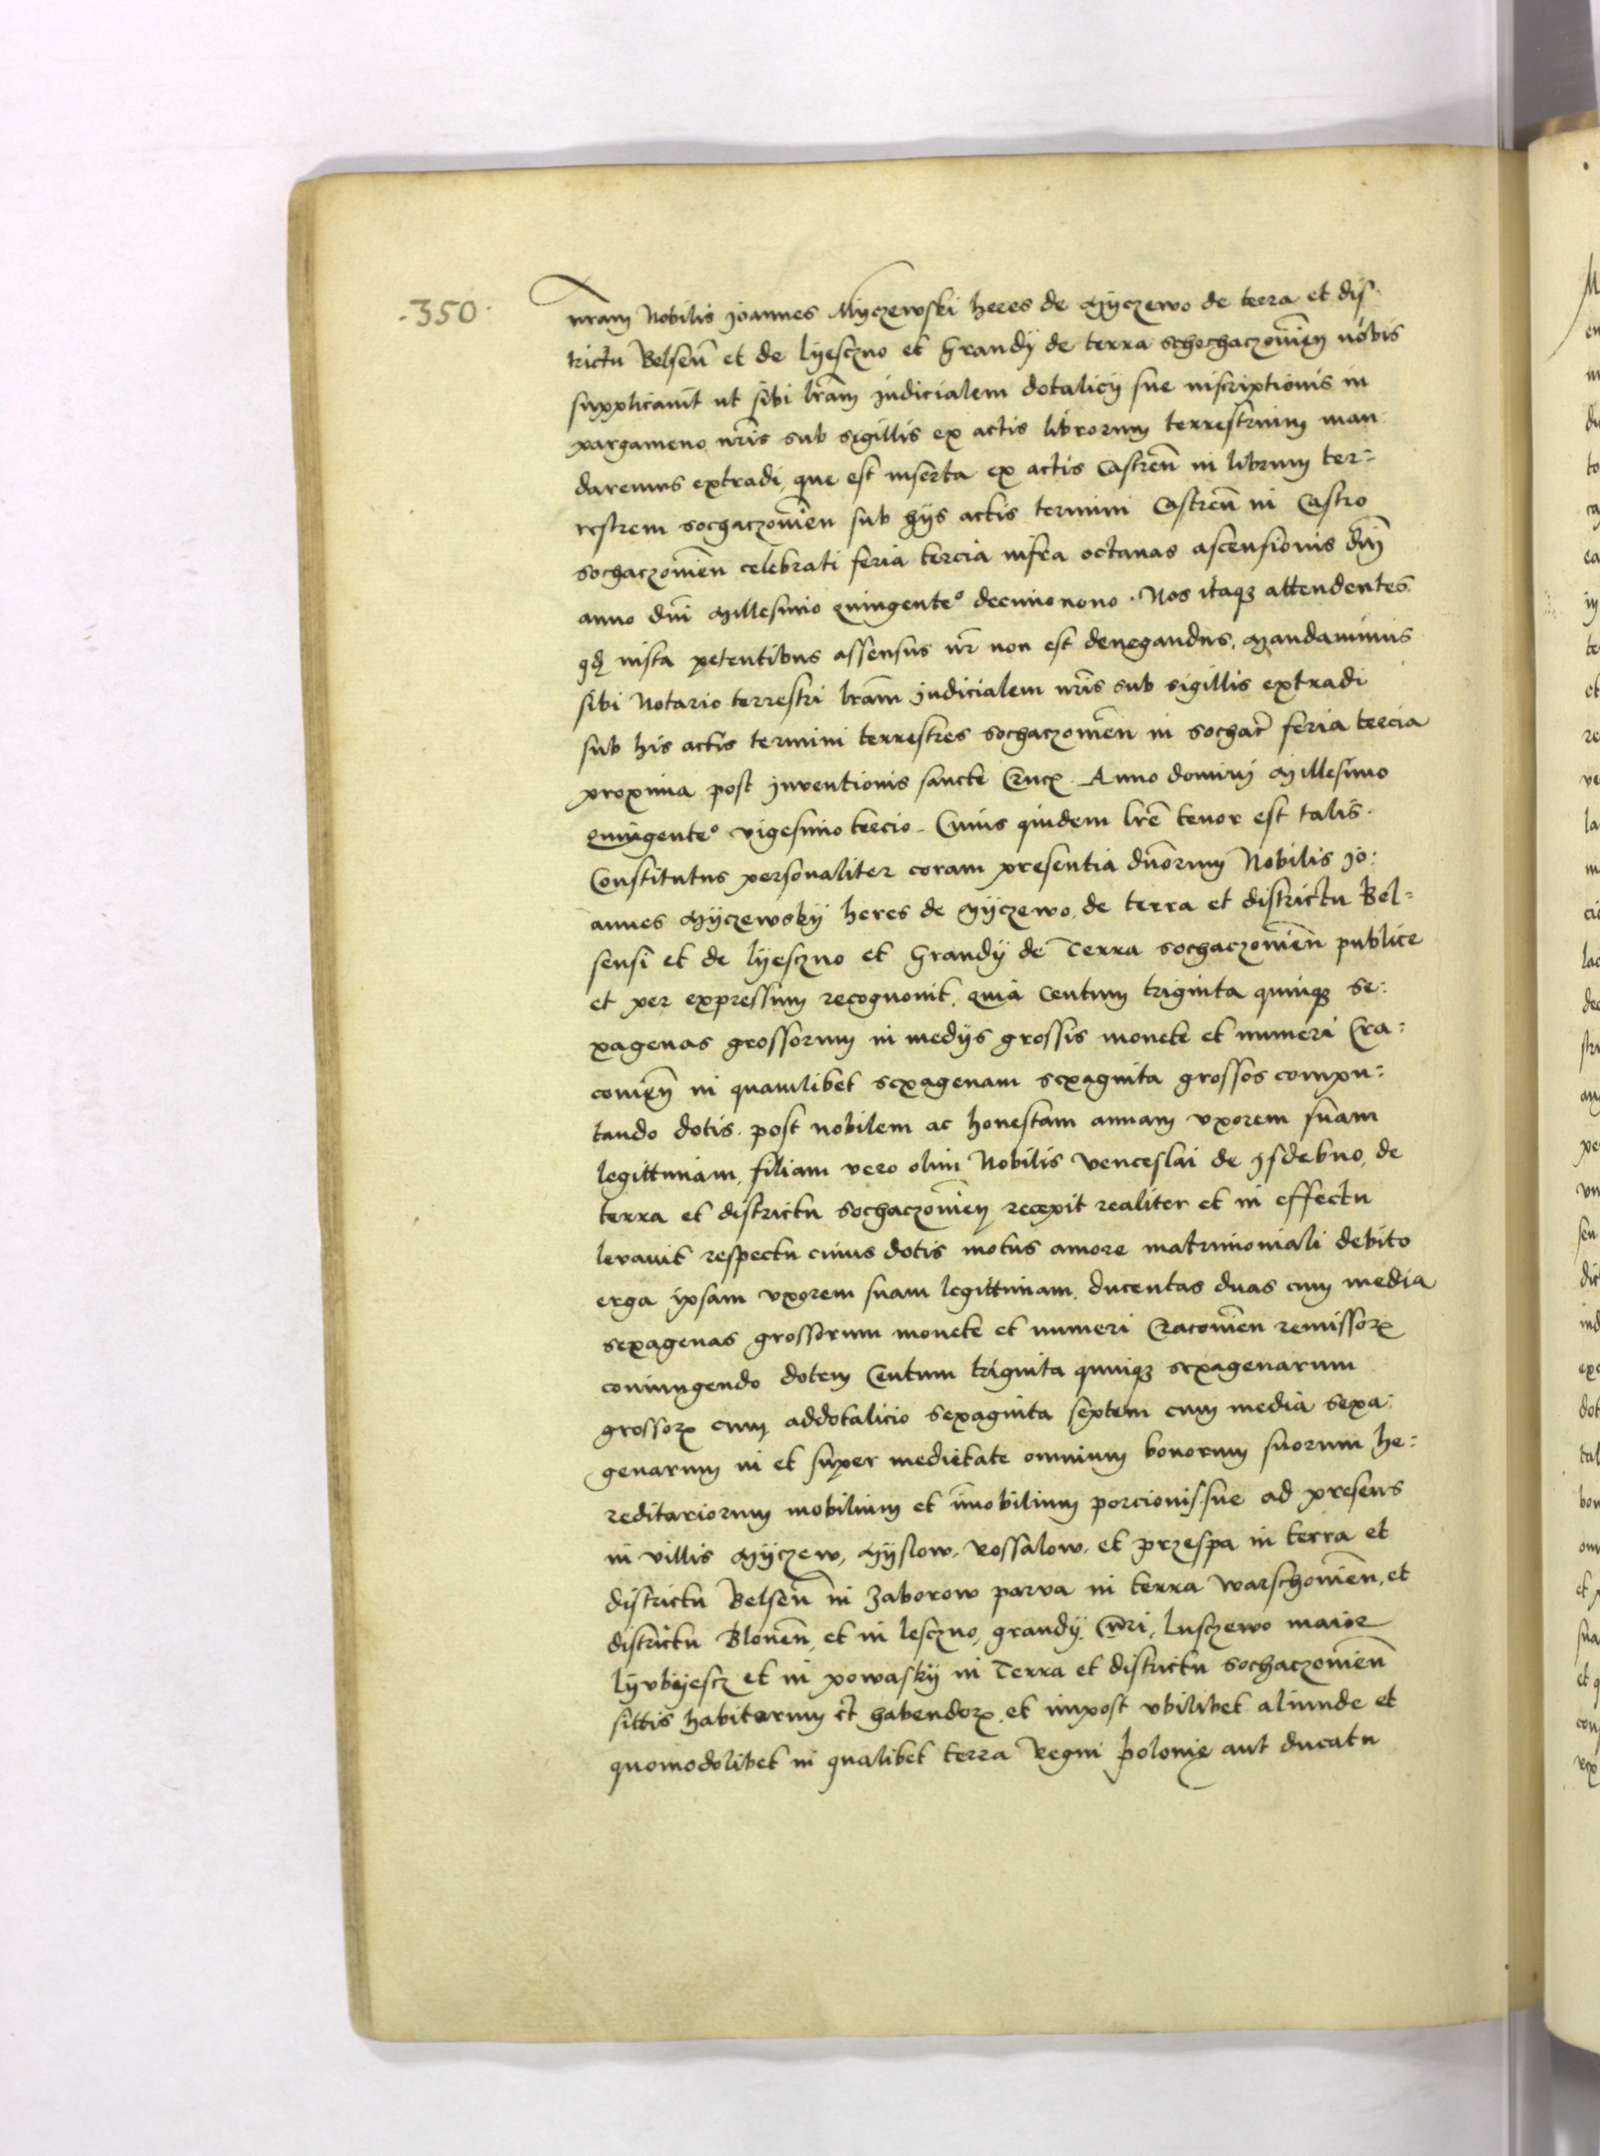 ·350·
nr̄am Nobilis Joannes Myczewski heres de Myczewo de terra et dis-
trictu Belsen̄ et de lyesczno et Grandy de terra Schochaczowien̄ nobis
supplicavit ut sibi lr̄am judicialem dotalicij sue inscriptionis in
pargameno nr̄is sub sigillis ex actis librorum terrestrium man-
daremus extradi, que est inserta ex actis Castren̄ in librum ter=
restrem sochaczowien̄ sub hijs actis termini Castren̄ in Castro
sochaczowien̄ celebrati feria tercia infra octauas ascensionis dn̄i
anno dn̄i Millesimo quingente° decimonono. Nos itaq3 attendentes
qđ iusta petentibus assensus nr̄ non est denegandus, Mandauimus
sibi Notario terrestri lr̄am judicialem nr̄is sub sigillis extradi
sub his actis termini terrestres sochaczowien̄ in sochac̄ feria tercia
proxima post jnventionis sancte Crucꝭ Anno domini Millesimo
quingente° vigesimo tercio. Cuius quidem lr̄e tenor est talis.
Constitutus personaliter coram presentia dn̄orum Nobilis Jo:
annes Myczewsky heres de Myczewo, de terra et districtu Bel=
sensi et de lyesczno et Grandy de Terra sochaczowien̄ publice
et per expressum recognouit, quia Centum triginta quinq3 se:
xagenas grossorum in medijs grossis monete et numeri Cra:
couien̄ in quamlibet sexagenam sexaginta grossos compu:
tando dotis. post nobilem ac honestam annam vxorem suam
legittimam, filiam vero olim Nobilis Venceslai de Jsdebno, de
terra et districtu sochaczowien̄ recepit realiter et in effectu
levauit respectu cuius dotis motus amore matrimoniali debito
erga ipsam vxorem suam legittimam, ducentas duas cum media
sexagenas grossorum monete et numeri Cracouien̄ remissorꝝ
coniungendo dotem Centum triginta quinq3 sexagenarum
grossorꝝ cum addotalicio sexaginta septem cum media sexa:
genarum in et super medietate omnium bonorum suorum he:
reditariorum mobilium et im̄obilium porcionis sue ad presens
in villis Myczew, Myslow, Rossalow, et przespa in terra et
districtu Belsen̄ in Zaborow parva in terra Warschowien̄, et
districtu Blonen̄, et in lesczno, grandy, luschewo maior
lyvbyescz et in powasky in Terra et districtu sochaczowien̄
sittis habitarum et habendorꝝ, et impost vbilibet aliunde et
quomodolibet in qualibet terra Regni polonie aut ducatu